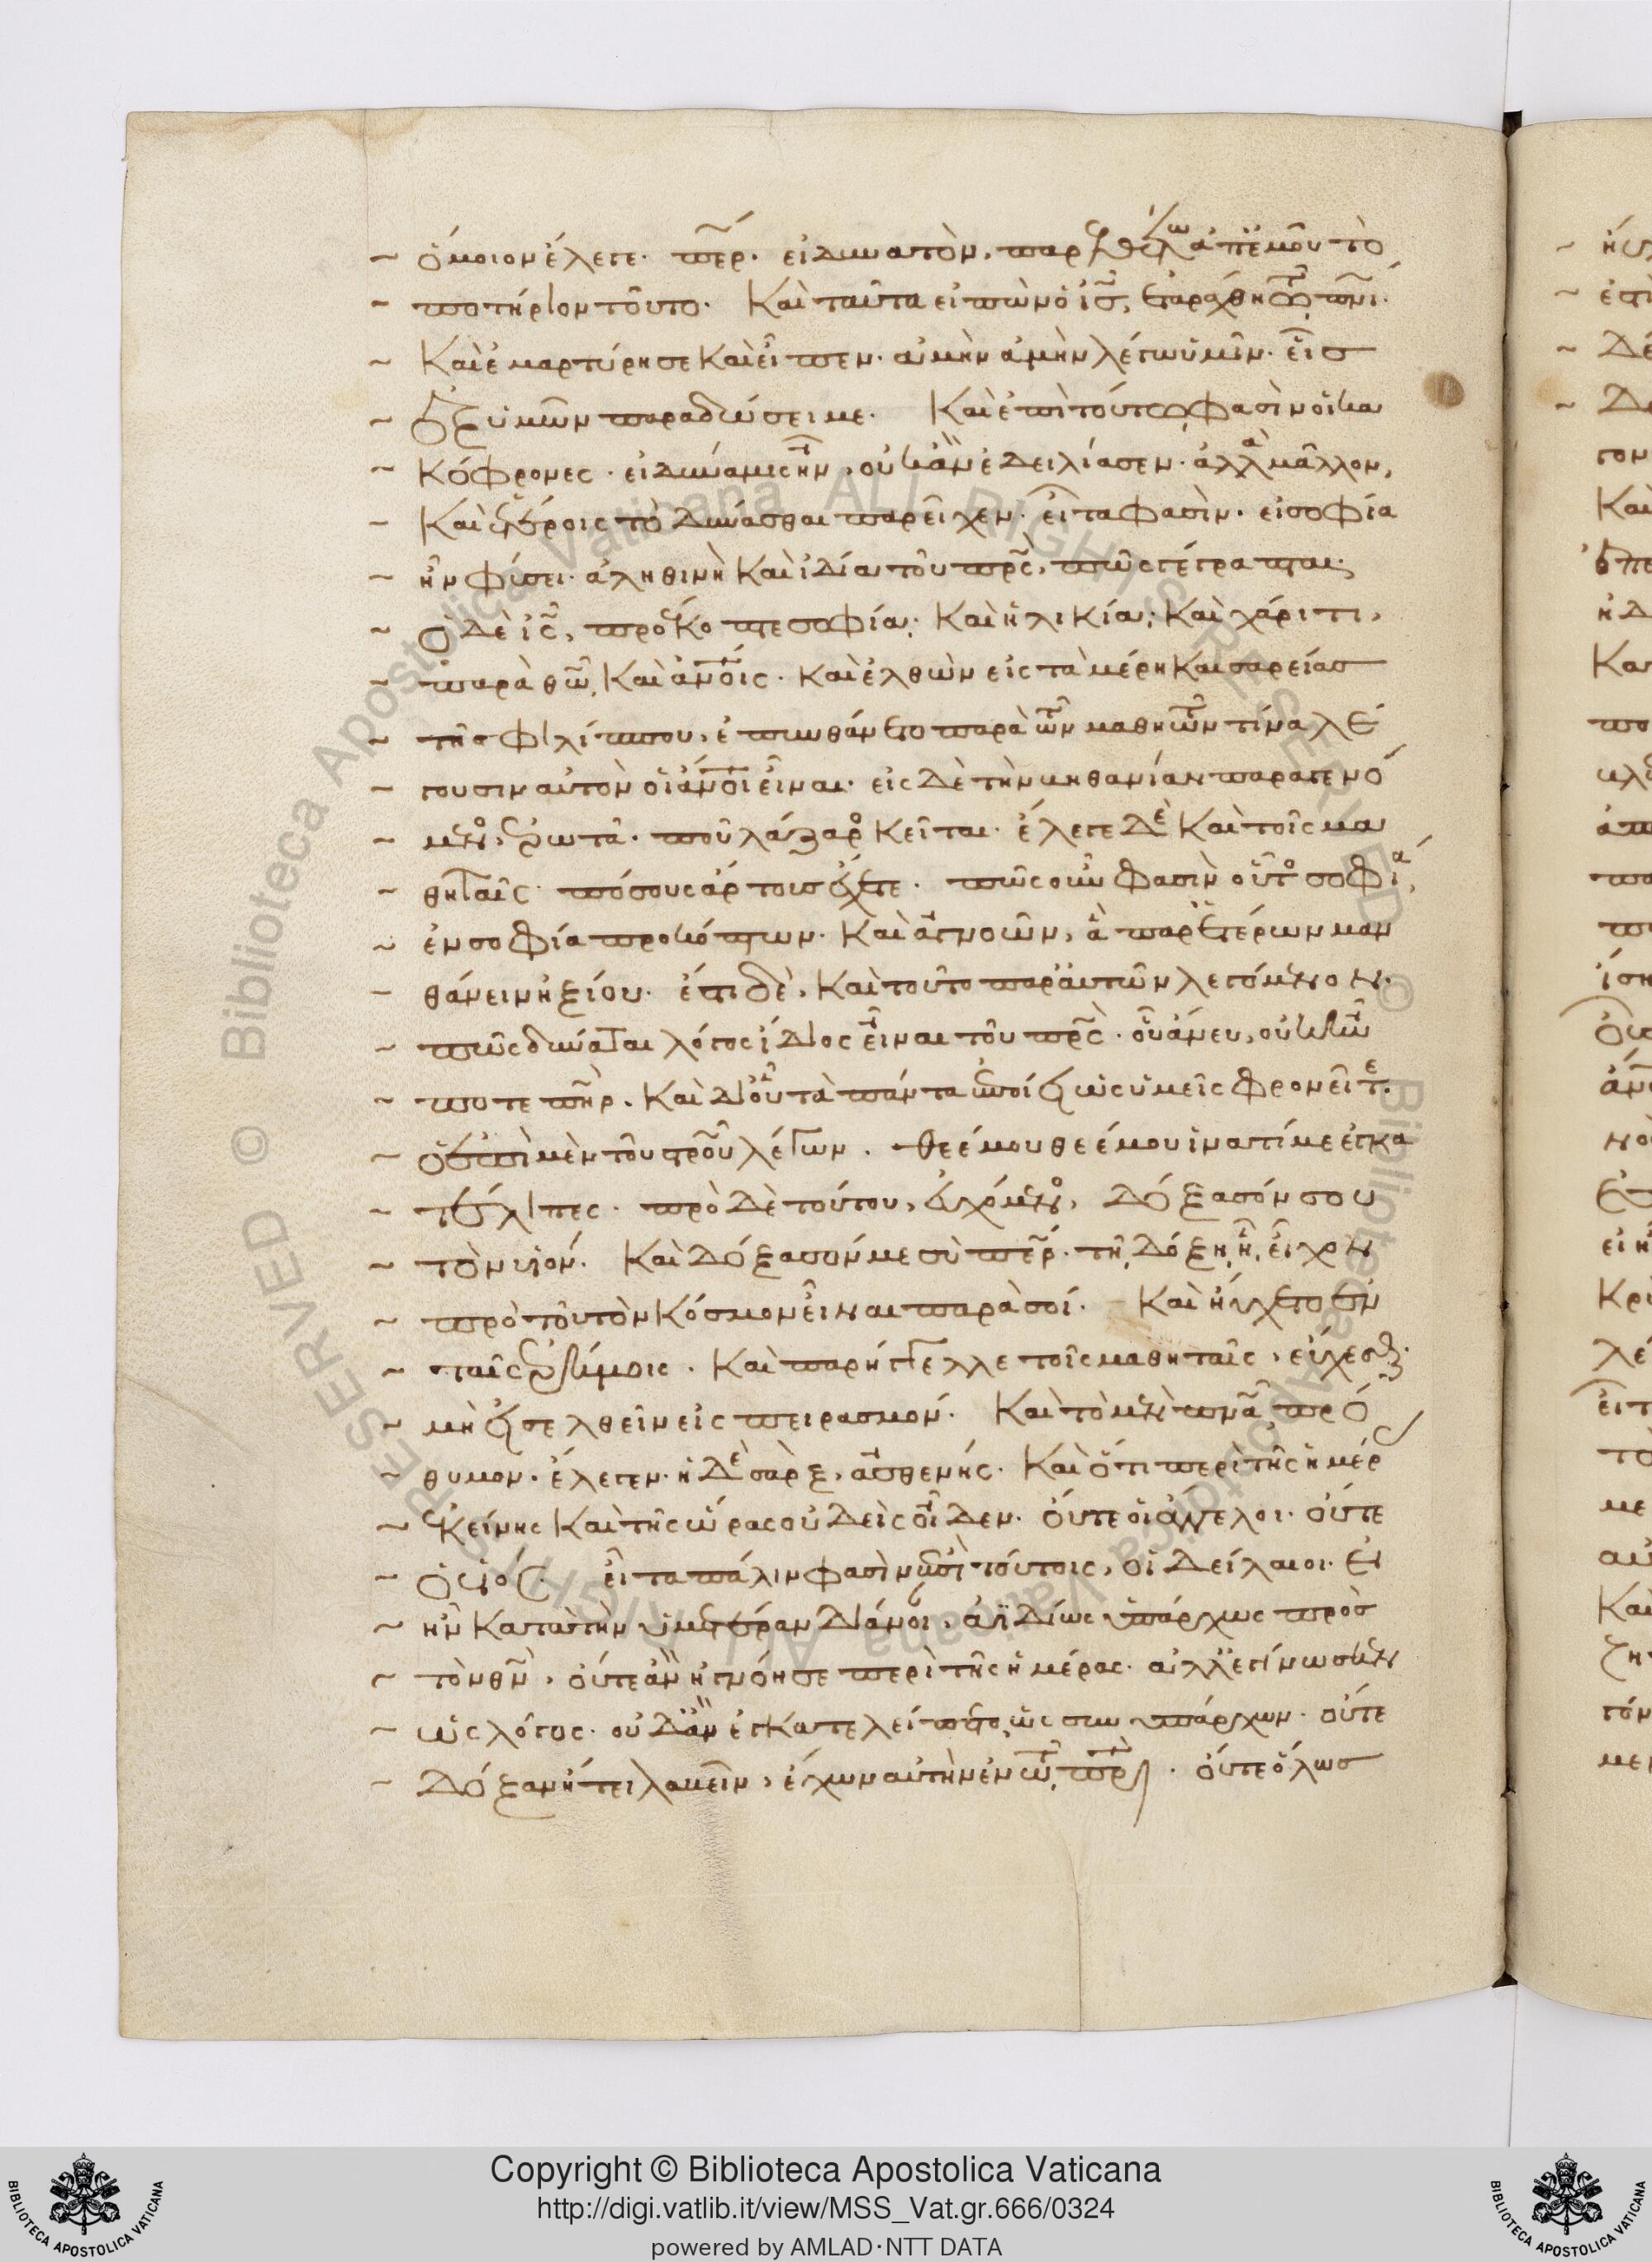 ~ ὅμοιον ἔλεγε· πε̅ρ· εἰ δυνατὸν, παρελθέτω ἀπ' ἐμοῦ τὸ
~ ποτήριον τοῦτο. Καὶ ταῦτα εἰπὼν ὁ ἰς̅, ἐταράχθη τῶ πνι̅.
~ Καὶ ἐμαρτύρησε καὶ εἶπεν. ἀμὴν ἀμὴν λέγω ὑμῖν. εἷσ
~ ἐξ ὑμῶν παραδώσει με. Καὶ ἐπὶ τούτω φασὶν οἱ κα
~ κόφρονες. εἰ δύναμις ἦν, οὐκ ἂν ἐδειλίασεν. ἀλλὰ μᾶλλον,
~ Καὶ ἑτέροις τὸ δύνασθαι παρεῖχεν. εἶτα φασὶν. εἰ σοφία
~ ἦν φύσει. ἀληθινὴ καὶ ἰδία τοῦ πρς̅, πῶς γέγραπται.
~ ὁ δὲ ἰς̅, προέκοπτε σοφία; Καὶ ἡλικία; Καὶ χάριτι,
~ παρὰ θω̅, Καὶ ἀνοις̅. καὶ ἐλθὼν εἰς τὰ μέρη καισαρείασ
~ τῆσ φιλίππου, ἐπυνθάνετο παρὰ τῶν μαθητῶν τίνα λέ
~ γουσιν αὐτὸν οἱ ἀνοι̅ εἶναι. εἰς δὲ τὴν βηθανίαν παραγενό
~ μενος, ἐρωτᾶ. ποῦ λάζαρος κεῖται. ἔλεγε δὲ καὶ τοῖς μα
~ θηταῖς. πόσους ἄρτουσ ἔχετε. πῶς οὖν φασὶν οὗτος σοφία,
~ ἐν σοφία προκόπτων. Καὶ ἀγνοῶν, ἃ παρ' ἑτέρων μαν
– θάνειν ἠξίου. ἔτι δὲ, Καὶ τοῦτο παρ' αὐτῶν λεγόμενον.
~ πῶς δύναται λόγος ἴδιος εἶναι τοῦ πρς̅. οὗ ἄνευ, οὐκ ἦν
~ ποτε πηρ̅. Καὶ δι' οὗ τὰ πάντα ποιεῖ ὡς ὑμεῖς φρονεῖτε.
~ ὁ ἐπὶ μὲν τοῦ σρου̅ λέγων. θεέ μου θεέ μου ἱνατί με ἐγκα
~ τέλιπες. πρὸ δὲ τούτου, εὐχόμενος, δόξασόν σου
~ τὸν υἱόν. Καὶ δόξασόν με σὺ πε̅ρ. τῆ δόξη, ἧ, εἶχον
~ πρὸ τοῦ τὸν κόσμον εἶναι παρὰ σοί. Καὶ ηὔχετο ἐν
~ ταῖς ἐρήμοις. Καὶ παρήγγελλε τοῖς μαθηταῖς, εὔχεσθαι.
~ μὴ εἰσελθεῖν εἰς πειρασμόν. Καὶ τὸ μὲν πνα̅ πρό
~ θυμον. ἔλεγεν. ἡ δὲ σὰρξ, ἀσθενής. Καὶ ὅτι περὶ τῆς ἡμέρας
~ ἐκείνης καὶ τῆς ὥρας οὐδεὶς οἶδεν. οὔτε οἱ ἄγγελοι. οὔτε
~ ὁ υἱός. εἶτα πάλιν φασὶν ἐπὶ τούτοις, οἱ δείλαιοι. εἰ
~ ἦν κατὰ τὴν ὑμετέραν διάνοι, ἀϊδίως ὑπάρχων πρὸσ
~ τὸν θν̅, οὔτε ἂν ἠγνόησε περὶ τῆς ἡμέρας. ἀλλ' ἐγίνωσκεν
~ ὡς λόγος. οὐδ' ἂν ἐγκατελείπετο, ὡς συνυπάρχων. οὔτε
~ δόξαν ἤτει λαβεῖν, ἔχων αὐτὴν ἐν τῶ, πρι̅. οὔτε ὅλωσ
Copyright © Biblioteca Apostolica Vaticana
http://digi.vatlib.it/view/MSS_Vat.gr.666/0324
powered by AMLAD·NTT DATA